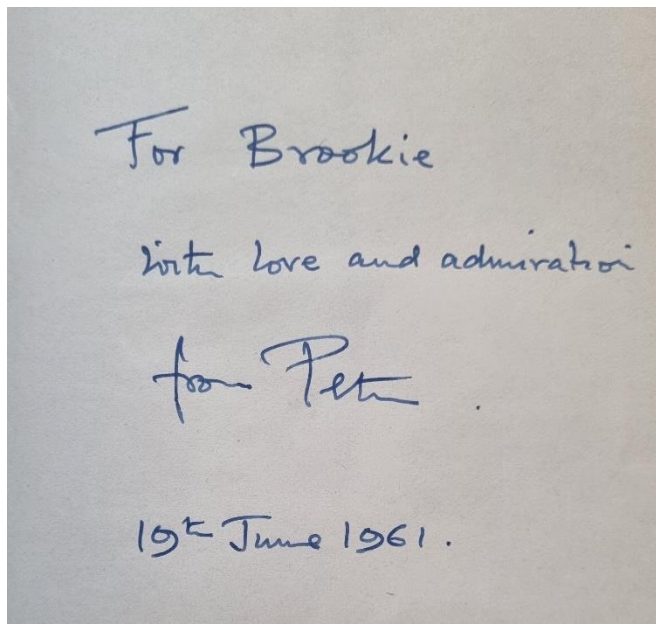 For Brookie
with love and admiration
from Peter
19th June 1961.